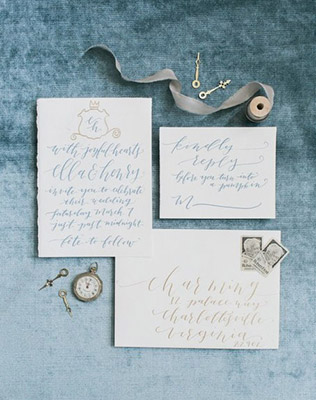 ch
with joyful hearts
Ella & henry
invite you to celebrate
their wedding
Saturday, March 7
just past midnight
fete to follow
kindly
reply
before you turn into
a pumpkin
M
Charming
12 palace way
Charlottesville
Virginia